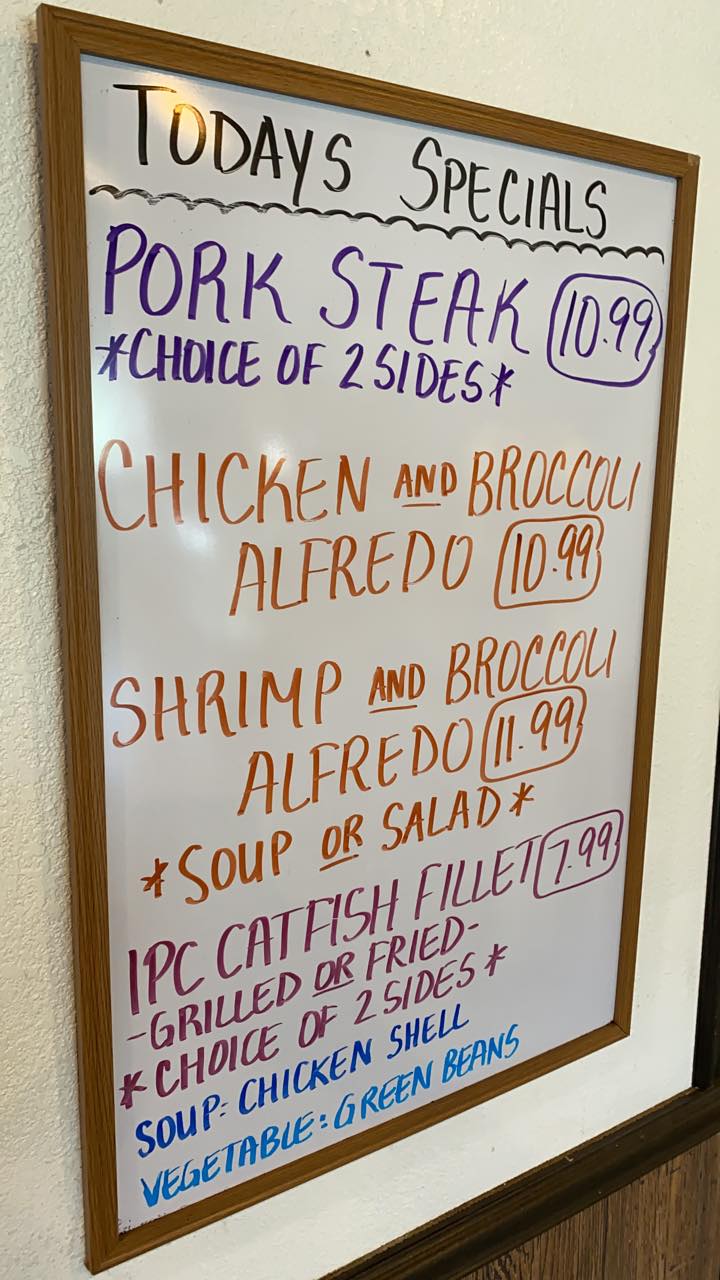 TODAYS SPECIALS
PORK STEAK 10.99
*CHOICE OF 2 SIDES*
CHICKEN AND BROCCOLI
ALFREDO 10.99
SHRIMP AND BROCCOLI
ALFREDO 11.99
*SOUP OR SALAD*
1PC CATFISH FILLET 7.99
-GRILLED OR FRIED-
*CHOICE OF 2 SIDES*
SOUP: CHICKEN SHELL
VEGETABLE: GREEN BEANS